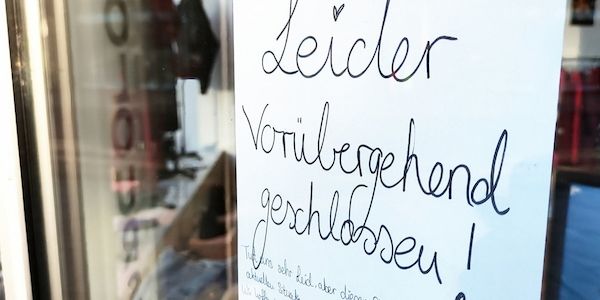 Leider
Vorübergehend
geschlossen!
Tut uns sehr leid, aber diese
aktuellen